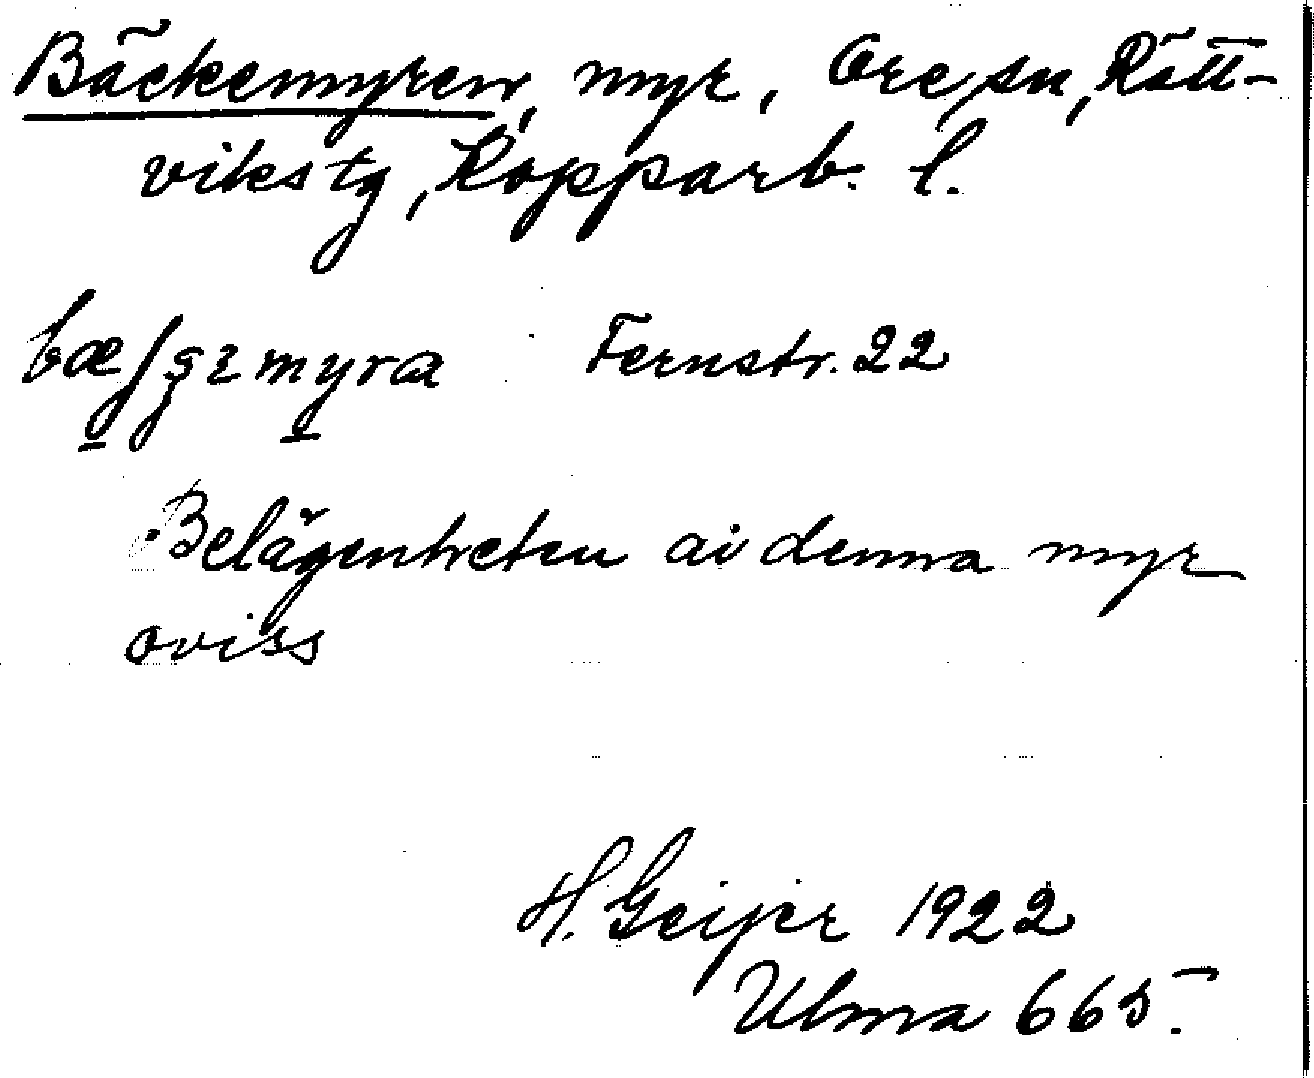 Bäckemyren, myr, Ore sn, Rätt-
viks tg, Kopparb. l.
Fernstr. 22
Belägenheten av denna myr
oviss
H. Geijer 1922
Ulma 665.